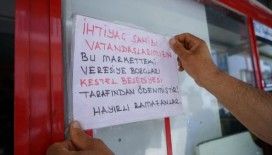 İHTİYAÇ SAHİBİ
VATANDAŞLARIMIZIN
BU MARKETTEKİ
VERESİYE BORÇLARI
KESTEL BELEDİYESİ
TARAFINDAN ÖDENMİŞTİR
HAYIRLI RAMAZANLAR